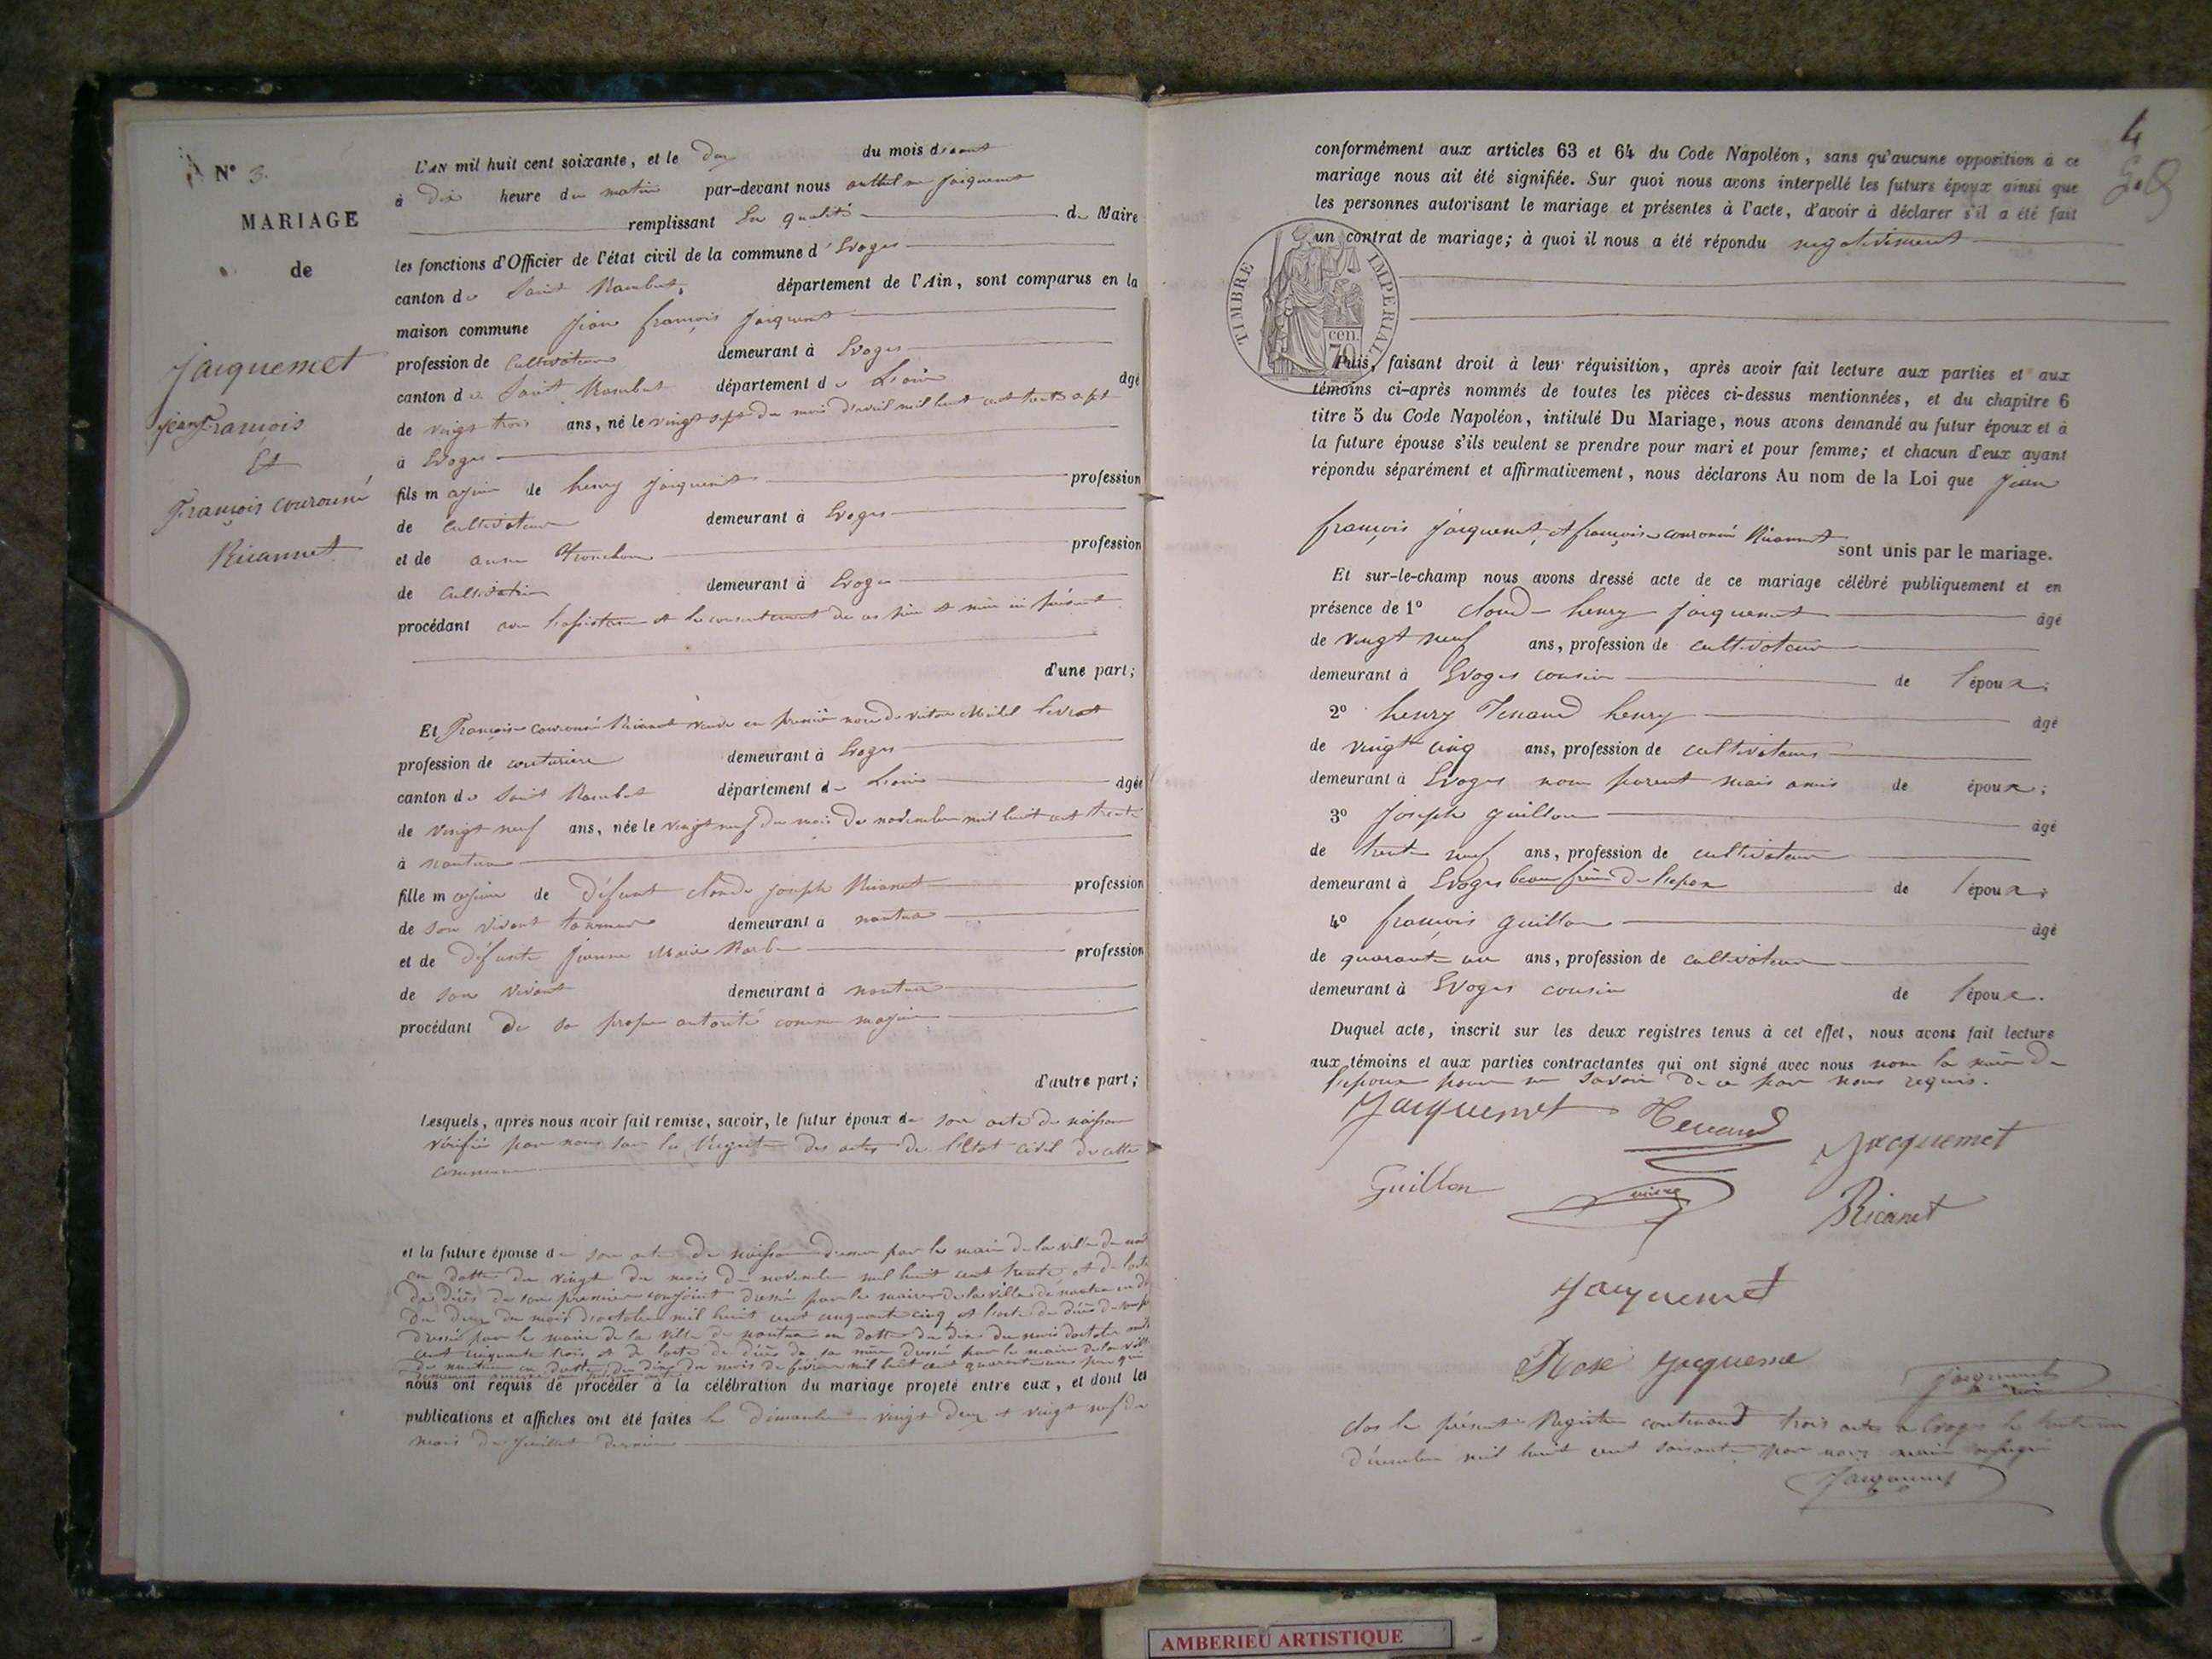 N° 3.
MARIAGE
de
Jacquemet
Jean François
Et
François couronné
Ricannet
L'AN mil huit cent soixante, et le du mois d'aout
à Dix heure du matin par-devant nous Jacquemet
remplissant En qualité de Maire
les fonctions d'Officier de l'état civil de la commune d'Evoges
canton de Saint Rambert, département de l'Ain, sont comparus en la
maison commune Jean françois Jacquemet
profession de Cultivateur demeurant à Evoges
canton de Saint Rambert département de L'ain âgé
de vingt trois ans, né le vingt sept du mois d'avril mil huit cent trente sept
à Evoges
fils majeur de henry Jacquemet profession
de cultivateur demeurant à Evoges
et de anne profession
de Cultivatrice demeurant à Evoges
procédant avec l'assistance et le consentement de ses père et mère ici présent
d'une part;
Et Françoise Couronné Ricanet veuve en premiè noce de victor Michel Levrat
profession de couturière demeurant à Evoges
canton de Saint Rambert département de L'ain âgée
de vingt neuf ans, née le vingt neuf du mois de novembre mil huit cent trente
à nantua
fille majeure de défunt claude joseph Ricanet profession
de son vivant tanneur demeurant à nantua
et de défunte jeanne Marie profession
de son vivant demeurant à nantua
procédant de sa propre autorité comme majeure
d'autre part;
Lesquels, après nous avoir fait remise, savoir, le futur époux de son acte de naissance
vérifié par nous sur les Registre des actes de l'Etat civil de cette
commune
et la future épouse de son acte de naissance dressé par le maire de la ville de
en datte du vingt du mois de novembre mil huit cent trente et de l'acte
de décès de son premier conjoint dressé par le maire de la ville de nantua en
du deux du mois d'octobre mil huit cent cinquante cinq et l'acte de décès de son
dressé par le maire de la ville de nantua en datte du dix du mois d'octobre
cent cinquante trois et de l'acte de décès de sa mère dressé par le maire de la ville
de nantua en datte du dix du mois de février mil huit cent quarante
nous ont requis de procéder à la célébration du mariage projeté entre eux, et dont les
publications et affiches ont été faites le dimanche vingt deux et vingt neuf du
mois de Juillet dernier
4
conformément aux articles 63 et 64 du Code Napoléon, sans qu'aucune opposition à ce
mariage nous ait été signifiée. Sur quoi nous avons interpellé les futurs époux ainsi que
les personnes autorisant le mariage et présentes à l'acte, d'avoir à déclarer s'il a été fait
un contrat de mariage; à quoi il nous a été répondu négativement
TIMBRE IMPERIAL
cen.
70
Puis, faisant droit à leur réquisition, après avoir fait lecture aux parties et aux
témoins ci-après nommés de toutes les pièces ci-dessus mentionnées, et du chapitre 6
titre 5 du Code Napoléon, intitulé Du Mariage, nous avons demandé au futur époux et à
la future épouse s'ils veulent se prendre pour mari et pour femme; et chacun d'eux ayant
répondu séparément et affirmativement, nous déclarons Au nom de la Loi que Jean
françois Jacquemet, et françoise couronné Ricannet sont unis par le mariage.
Et sur-le-champ nous avons dressé acte de ce mariage célébré publiquement et en
présence de 1° claude henry Jacquemet âgé
de vingt neuf ans, profession de cultivateur
demeurant à Evoges cousin de l'époux;
2° henry Tenand henry âgé
de vingt cinq ans, profession de cultivateur
demeurant à Evoges non parent mais amis de époux;
3° Joseph guillon âgé
de trente neuf ans, profession de cultivateur
demeurant à Evoges beau frère de l'épou de l'époux;
4° françois guillon âgé
de quarante un ans, profession de cultivateur
demeurant à Evoges cousin de l'époux.
Duquel acte, inscrit sur les deux registres tenus à cet effet, nous avons fait lecture
aux témoins et aux parties contractantes qui ont signé avec nous non la mère de
l'époux pour ne savoir de ce par nous requis.
Jacquemet Tenand Jacquemet
Guillon Ricanet
Jacquemet
Rose Jacqueme
Jacquemet
clos le présent Registre contenant trois actes a Evoges le trente un
décembre mil huit cent soixante par nous maire
Jacquemet
AMBERIEU ARTISTIQUE